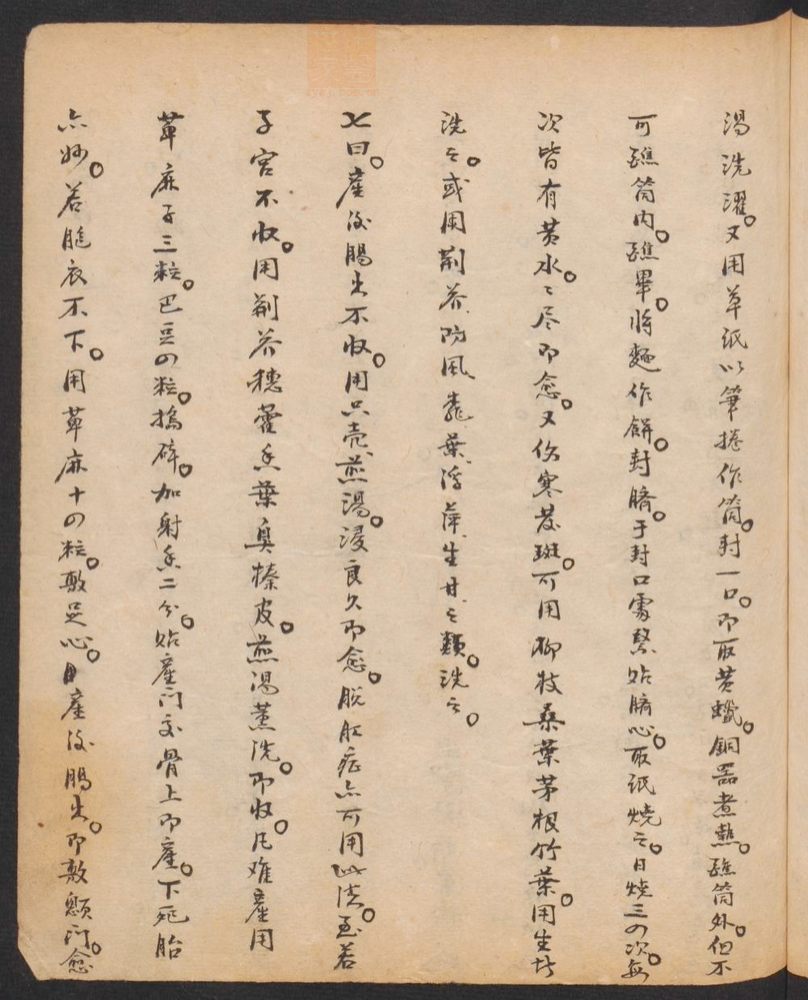 湯洗濯。又用草紙以筆捲作筒。封一口。即取黄蠟。銅器煮熱。蘸筒外。但不
可蘸筒内。蘸畢。將麵作餅。封臍。于封口處緊貼臍心。取紙燒之。日燒三四次。每
次皆有黄水。〻尽即愈。又伤寒发斑。可用柳枝桑葉茅根竹葉。用生
洗之。或用荆芥防風葉浮萍生甘之類。洗之。
七曰。産後腸出不收。用只壳煎湯。浸良久即愈。脱肛症亦可用此法。至若
子宮不收。用荆芥穗藿香葉臭樁皮。煎湯薫洗。即收。凡难産用
萆麻子三粒。巴豆四粒。搗碎。加射香二分。貼産门交骨上即産。下死胎
亦妙。若胞衣不下。用萆麻十四粒。敷足心。産後腸出。即敷顖门。愈